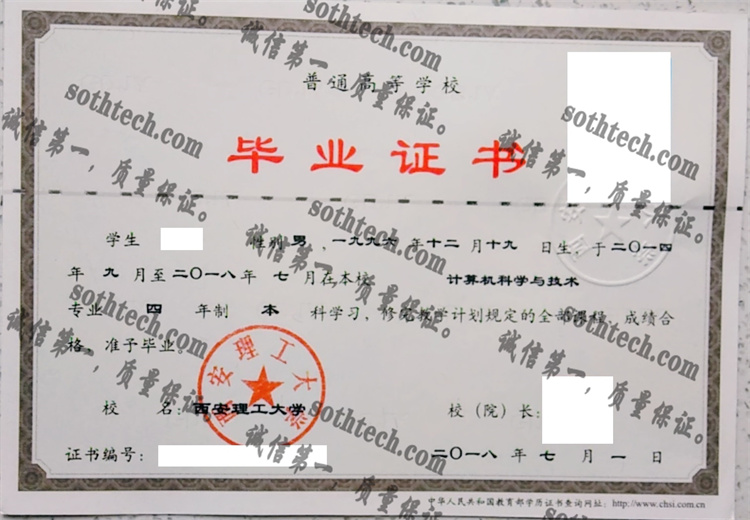 普通高等学校
毕业证书
学生 性别 男 ，一九九六 年十二 月十九 日生，于二〇一四
年 九 月至二〇一八年 七 月在本校 计算机科学与技术
专业 四 年制 本 科学习，修完教学计划规定的全部课程，成绩合
格，准予毕业。
西安理工大学
校 名：西安理工大学 校（院）长：
证书编号： 二〇一八 年 七 月 一 日
中华人民共和国教育部学历证书查询网址：http://www.chsi.com.cn
sothtech.com
诚信第一，质量保证。
sothtech.com
诚信第一，质量保证。
sothtech.com
诚信第一，质量保证。
sothtech.com
诚信第一，质量保证。
sothtech.com
诚信第一，质量保证。
sothtech.com
诚信第一，质量保证。
sothtech.com
诚信第一，质量保证。
sothtech.com
诚信第一，质量保证。